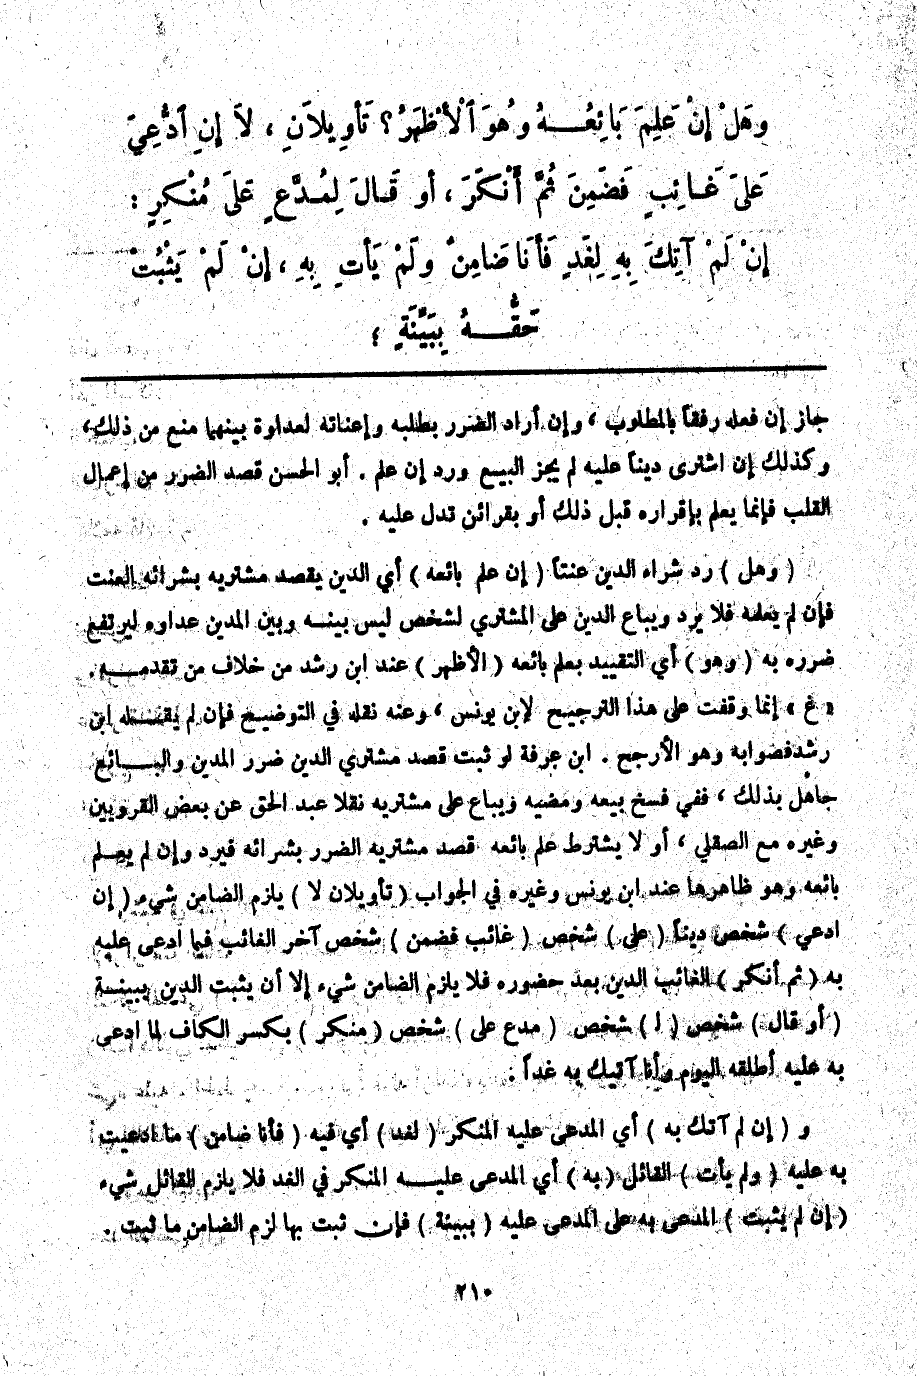 وَهَلْ إِنْ عَلِمَ بَائِعُـــهُ وَهُوَ ٱلْأَظْهَرُ؟ تَأْوِيلاَنِ ، لاَ إِنِ ٱدُّعِيَ
عَلىَ غَـائِبٍ فَضَمِنَ ثُمَّ أَنْكَرَ ، أو قَـالَ لِمُـدَّعٍ عَلىَ مُنْكِرٍ :
إِنْ لَمْ آتِكَ بِهِ لِغَدٍ فَأَنَا ضَامِنٌ وَلَمْ يَأتِ بِهِ ، إِنْ لَمْ يَثْبُتْ
حَقُّـــهُ بِبَيِّنَةٍ ؛
جاز إن فعله رفقاً بالمطلوب ، وإن أراد الضرر بطلبه وإعناته لعداوة بينهما منع من ذلك ،
وكذلك إن اشترى ديناً عليه لم يجز البيع ورد إن علم . أبو الحسن قصد الضرر من إعمال
القلب فإنما يعلم بإقراره قبل ذلك أو بقرائن تدل عليه .
( وهل ) رد شراء الدين عنتاً ( إن علم بائعه ) أي الدين يقصد مشتريه بشرائه العنت
فإن لم يعلمه فلا يرد ويباع الدين على المشتري لشخص ليس بينـه وبين المدين عداوه ليرتفع
ضرره به ( وهو ) أي التقييد بعلم بائعه ( الأظهر ) عند ابن رشد من خلاف من تقدمـه .
« غ » إنما وقفت على هذا الترجيح لابن يونس ، وعنه نقله في التوضيح فإن لم يقـــله ابن
رشدفصوابه وهو الأرجح . ابن عرفة لو ثبت قصد مشتري الدين ضرر المدين والبـــائع
جاهل بذلك ، ففي فسخ بيعه ومضيه ويباع على مشتريه نقلا عبد الحق عن بعض القرويين
وغيره مع الصقلي ، أو لا يشترط علم بائعه قصد مشتريه الضرر بشرائه فيرد وإن لم يعـلم
بائعه وهو ظاهرها عند ابن يونس وغيره في الجواب ( تأويلان لا ) يلزم الضامن شيء ( إن
ادعي ) شخص ديناً ( على ) شخص ( غائب فضمن ) شخص آخر الغائب فيما ادعى عليه
به ( ثم أنكر ) الغائب الدين بعد حضوره فلا يلزم الضامن شيء إلا أن يثبت الدين ببينـة
( أو قال ) شخص ( لـ ) شخص ( مدع على ) شخص ( منكر ) بكسر الكاف لما ادعى
به عليه أطلقه اليوم وأنا آتيك به غداً .
و ( إن لم آتك به ) أي المدعى عليه المنكر ( لغد ) أي فيه ( فأنا ضامن ) ما ادعيت
به عليه ( ولم يأت ) القائل ( به ) أي المدعى عليـــه المنكر في الغد فلا يلزم القائل شيء
( إن لم يثبت ) المدعى به على المدعى عليه ( ببينة ) فإن ثبت بها لزم الضامن ما ثبت .
٢١٠